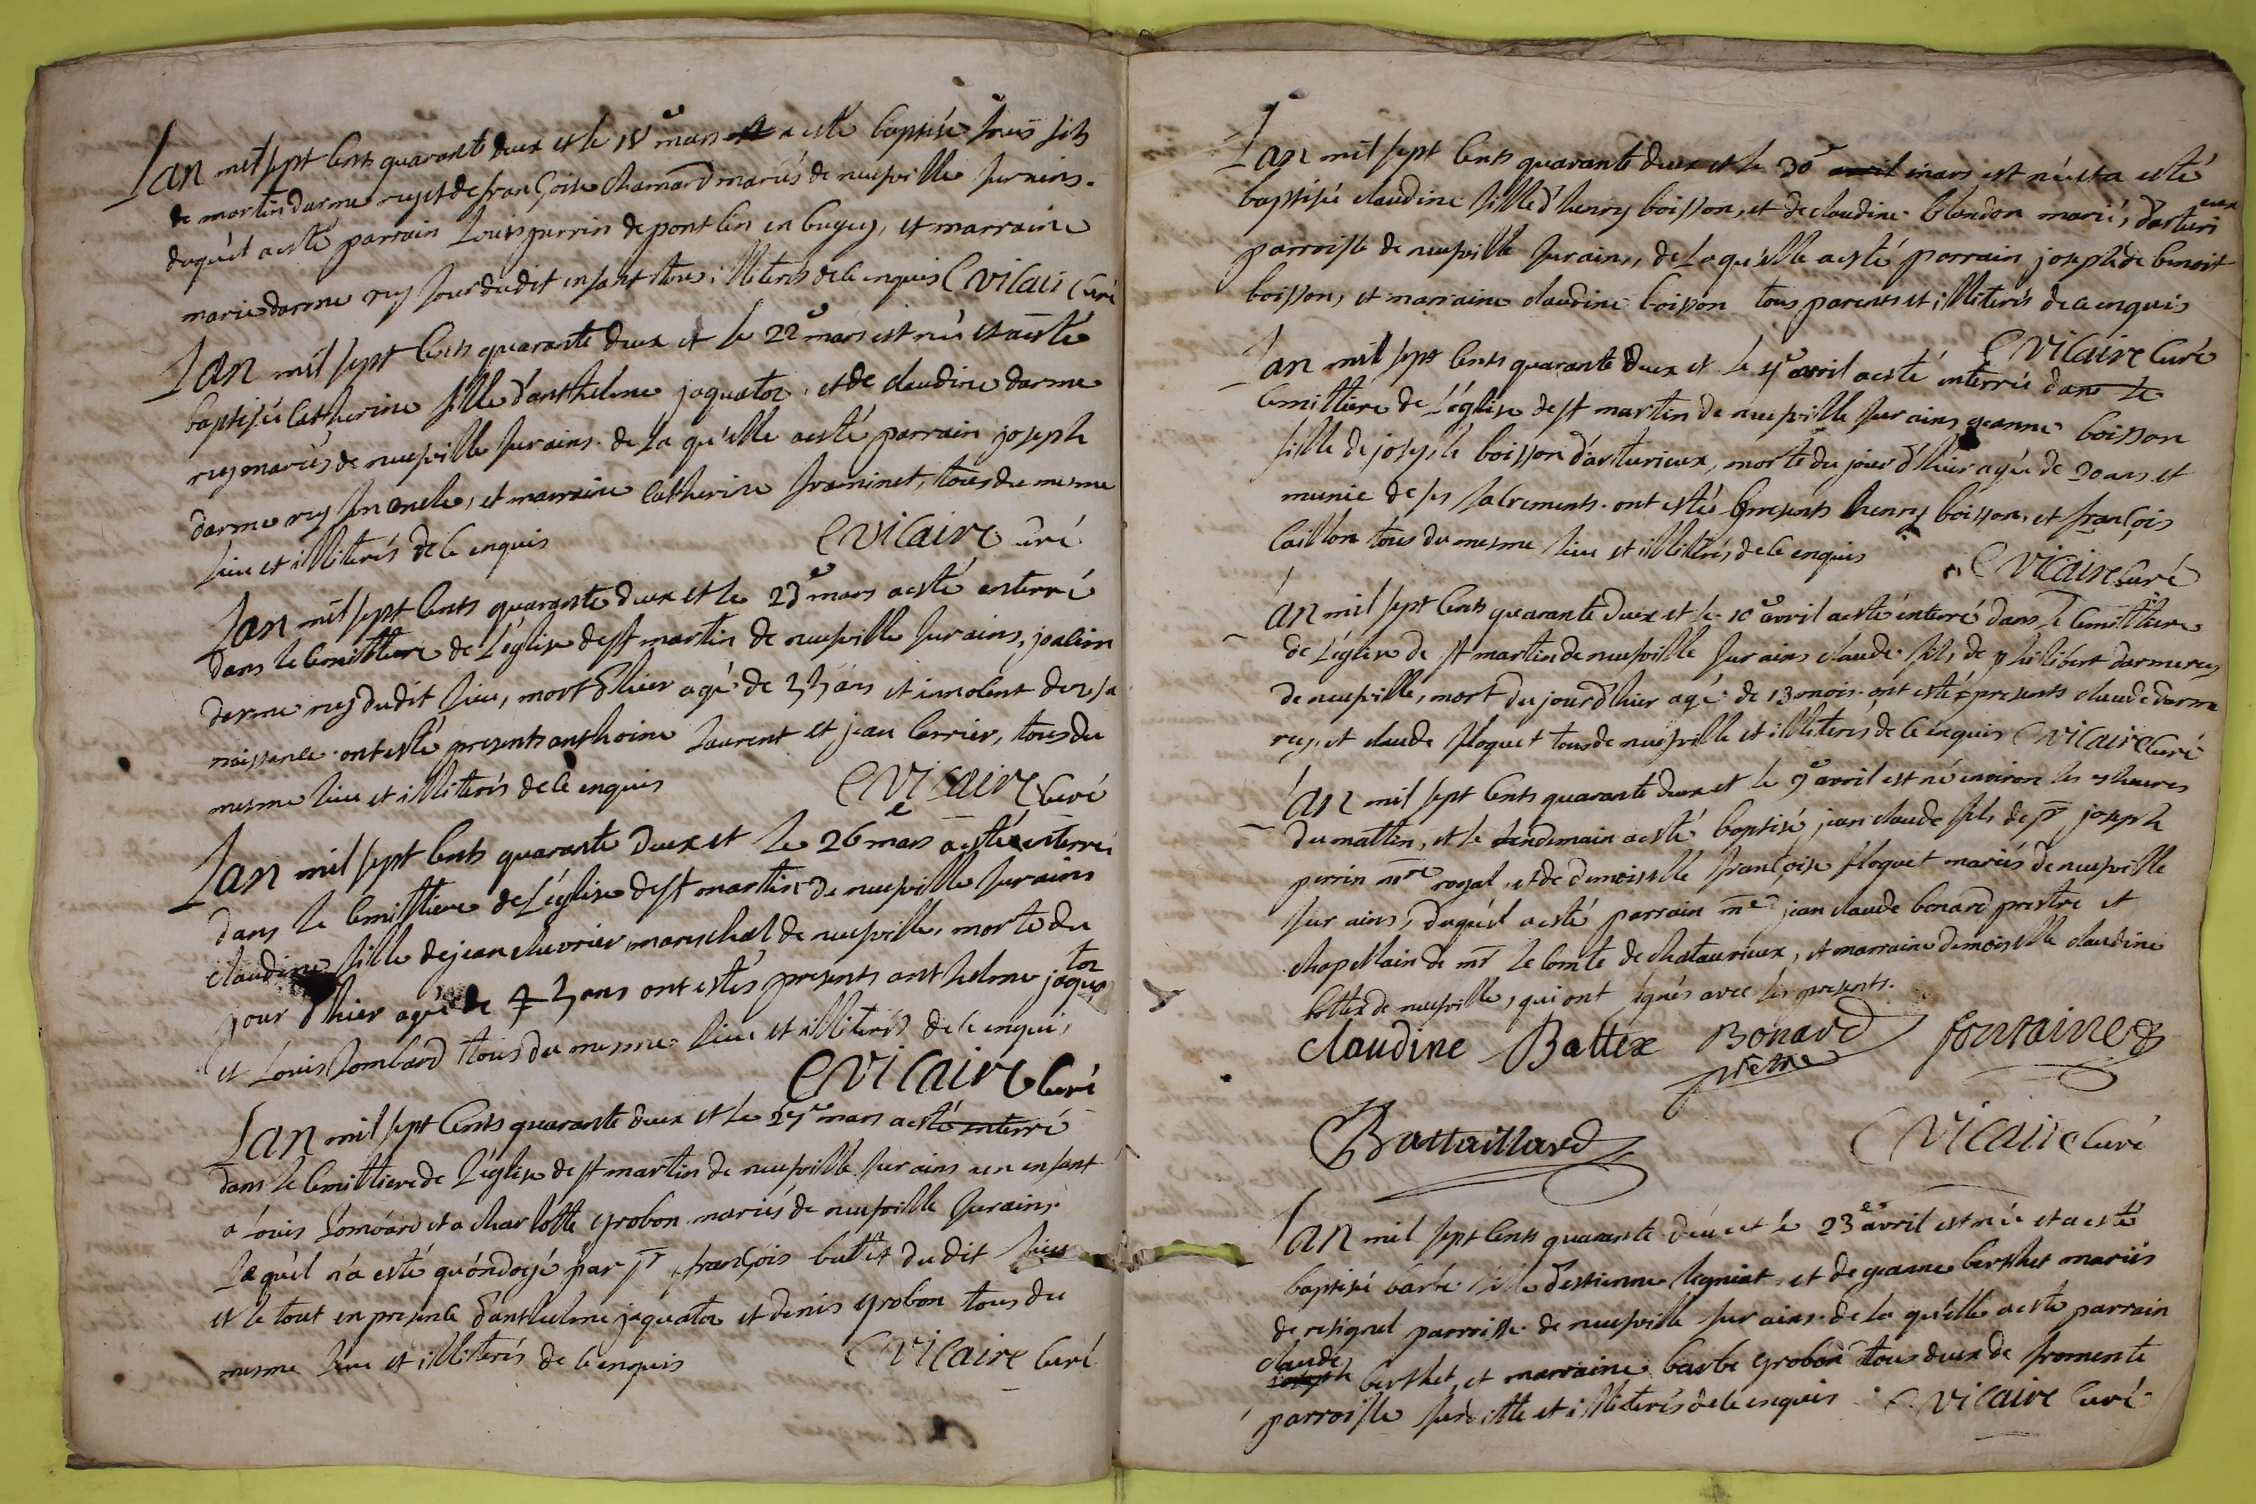 Lan mil sept Cents quarante deux et le 18e mars a esté baptisé Louis fils
de martin darme rey et de françoise chamard mariés de neufville sur ains.
duquél a esté parrain Louis perrin de pont Cin en bugey, et marraine
marie darme rey sœur dudit enfant tous illiterés de ce enquis E Vicaire Curé
Lan mil sept Cents quarante deux et le 22e mars est née et a esté
baptisée Catherine fille d'anthelme jaquator, et de claudine darme
rey mariés de neufville sur ains. de la qu'elle a esté parrain joseph
darme rey son oncle, et marraine Catherine framinet, tous du mesme
lieu et illiterés de ce enquis E Vicaire Curé
Lan mil sept Cents quarante deux et le 23e mars a esté enterré
dans le Cemittiere de L'église de st martin de neufville sur ains, joachim
darme rey dudit lieu, mort d'hier agé de 35 ans et innocent de sa
naissance. ont esté presents anthoine Laurent et jean Carrier, tous du
mesme lieu et illiterés de ce enquis E Vicaire Curé
Lan mil sept Cents quarante deux et le 26e mars a esté enterrée
dans le Cemittiere de L'église de st martin de neufville sur ains
claudine fille de jean chevrier mareschal de neufville, morte du
jour d'hier agée de 4 ans ont estés presents anthelme jaquator
et Louis Lombard tous du mesme lieu et illiterés de ce enquis
E Vicaire Curé
Lan mil sept Cents quarante deux et le 27e mars a esté enterré
dans le Cemittiere de L'église de st martin de neufville sur ains un enfant
a Louis Lombard et a charlotte grobon mariés de neufville sur ains.
Le quél n'a esté qu'ondoyé par sr françois butet du dit lieu
et le tout en presence d'anthelme jaquator et denis grobon tous du
mesme lieu et illiterés de ce enquis E Vicaire Curé
Lan mil sept Cents quarante deux et le 30e avril mars est née et a esté
baptisée claudine fille d'henry boisson, et de claudine blondon mariés, d'arturieux
parroisse de neufville sur ains, de La qu'elle a esté parrain joseph de benoit
boisson, et marraine claudine boisson tous parents et illiterés de ce enquis
E Vicaire Curé
Lan mil sept Cents quarante deux et le avril a esté enterrée dans le
Cemittiere de L'église de st martin de neufville sur ains jeanne boisson
fille de joseph boisson d'arturieux, morte du jour d'hier agée de 20 ans et
munie de ses sacrements. ont estés presents henry boisson, et françois
Caillon tous du mesme lieu et illiterés de ce enquis E Vicaire Curé
Lan mil sept Cents quarante deux et le 10e avril a esté enterré dans le Cemittiere
de L'église de st martin de neufville sur ains claude fils de philibert darme rey
de neufville, mort du jour d'hier agé de 13 mois. ont estés presents claude darme
rey, et claude floquet tous de neufville et illiterés de ce enquis E Vicaire Curé
Lan mil sept Cents quarante deux et le 9e avril est né environ les heures
du mattin, et le lendemain a esté baptisé jean claude fils de sr joseph
perrin nre royal, et de demoiselle françoise floquet mariés de neufville
sur ains, duquél a esté parrain mre jean claude bonard prestre et
chapellain de mr le Comte de chatauvieux, et marraine demoiselle claudine
battex de neufville, qui ont signés avec les presents.
Claudine Battex Bonard prêtre fontaine
Battaillard E Vicaire Curé
Lan mil sept Cents quarante deux et le 23e avril est née et a esté
baptisée barbe fille d'estienne legniat, et de jeanne berthet mariés
de resignel parroisse de neufville sur ains. de la qu'elle a esté parrain
claude joseph berthet, et marraine barbe grobon tous deux de fromente
parroisse susditte et illiterés de ce enquis E Vicaire Curé